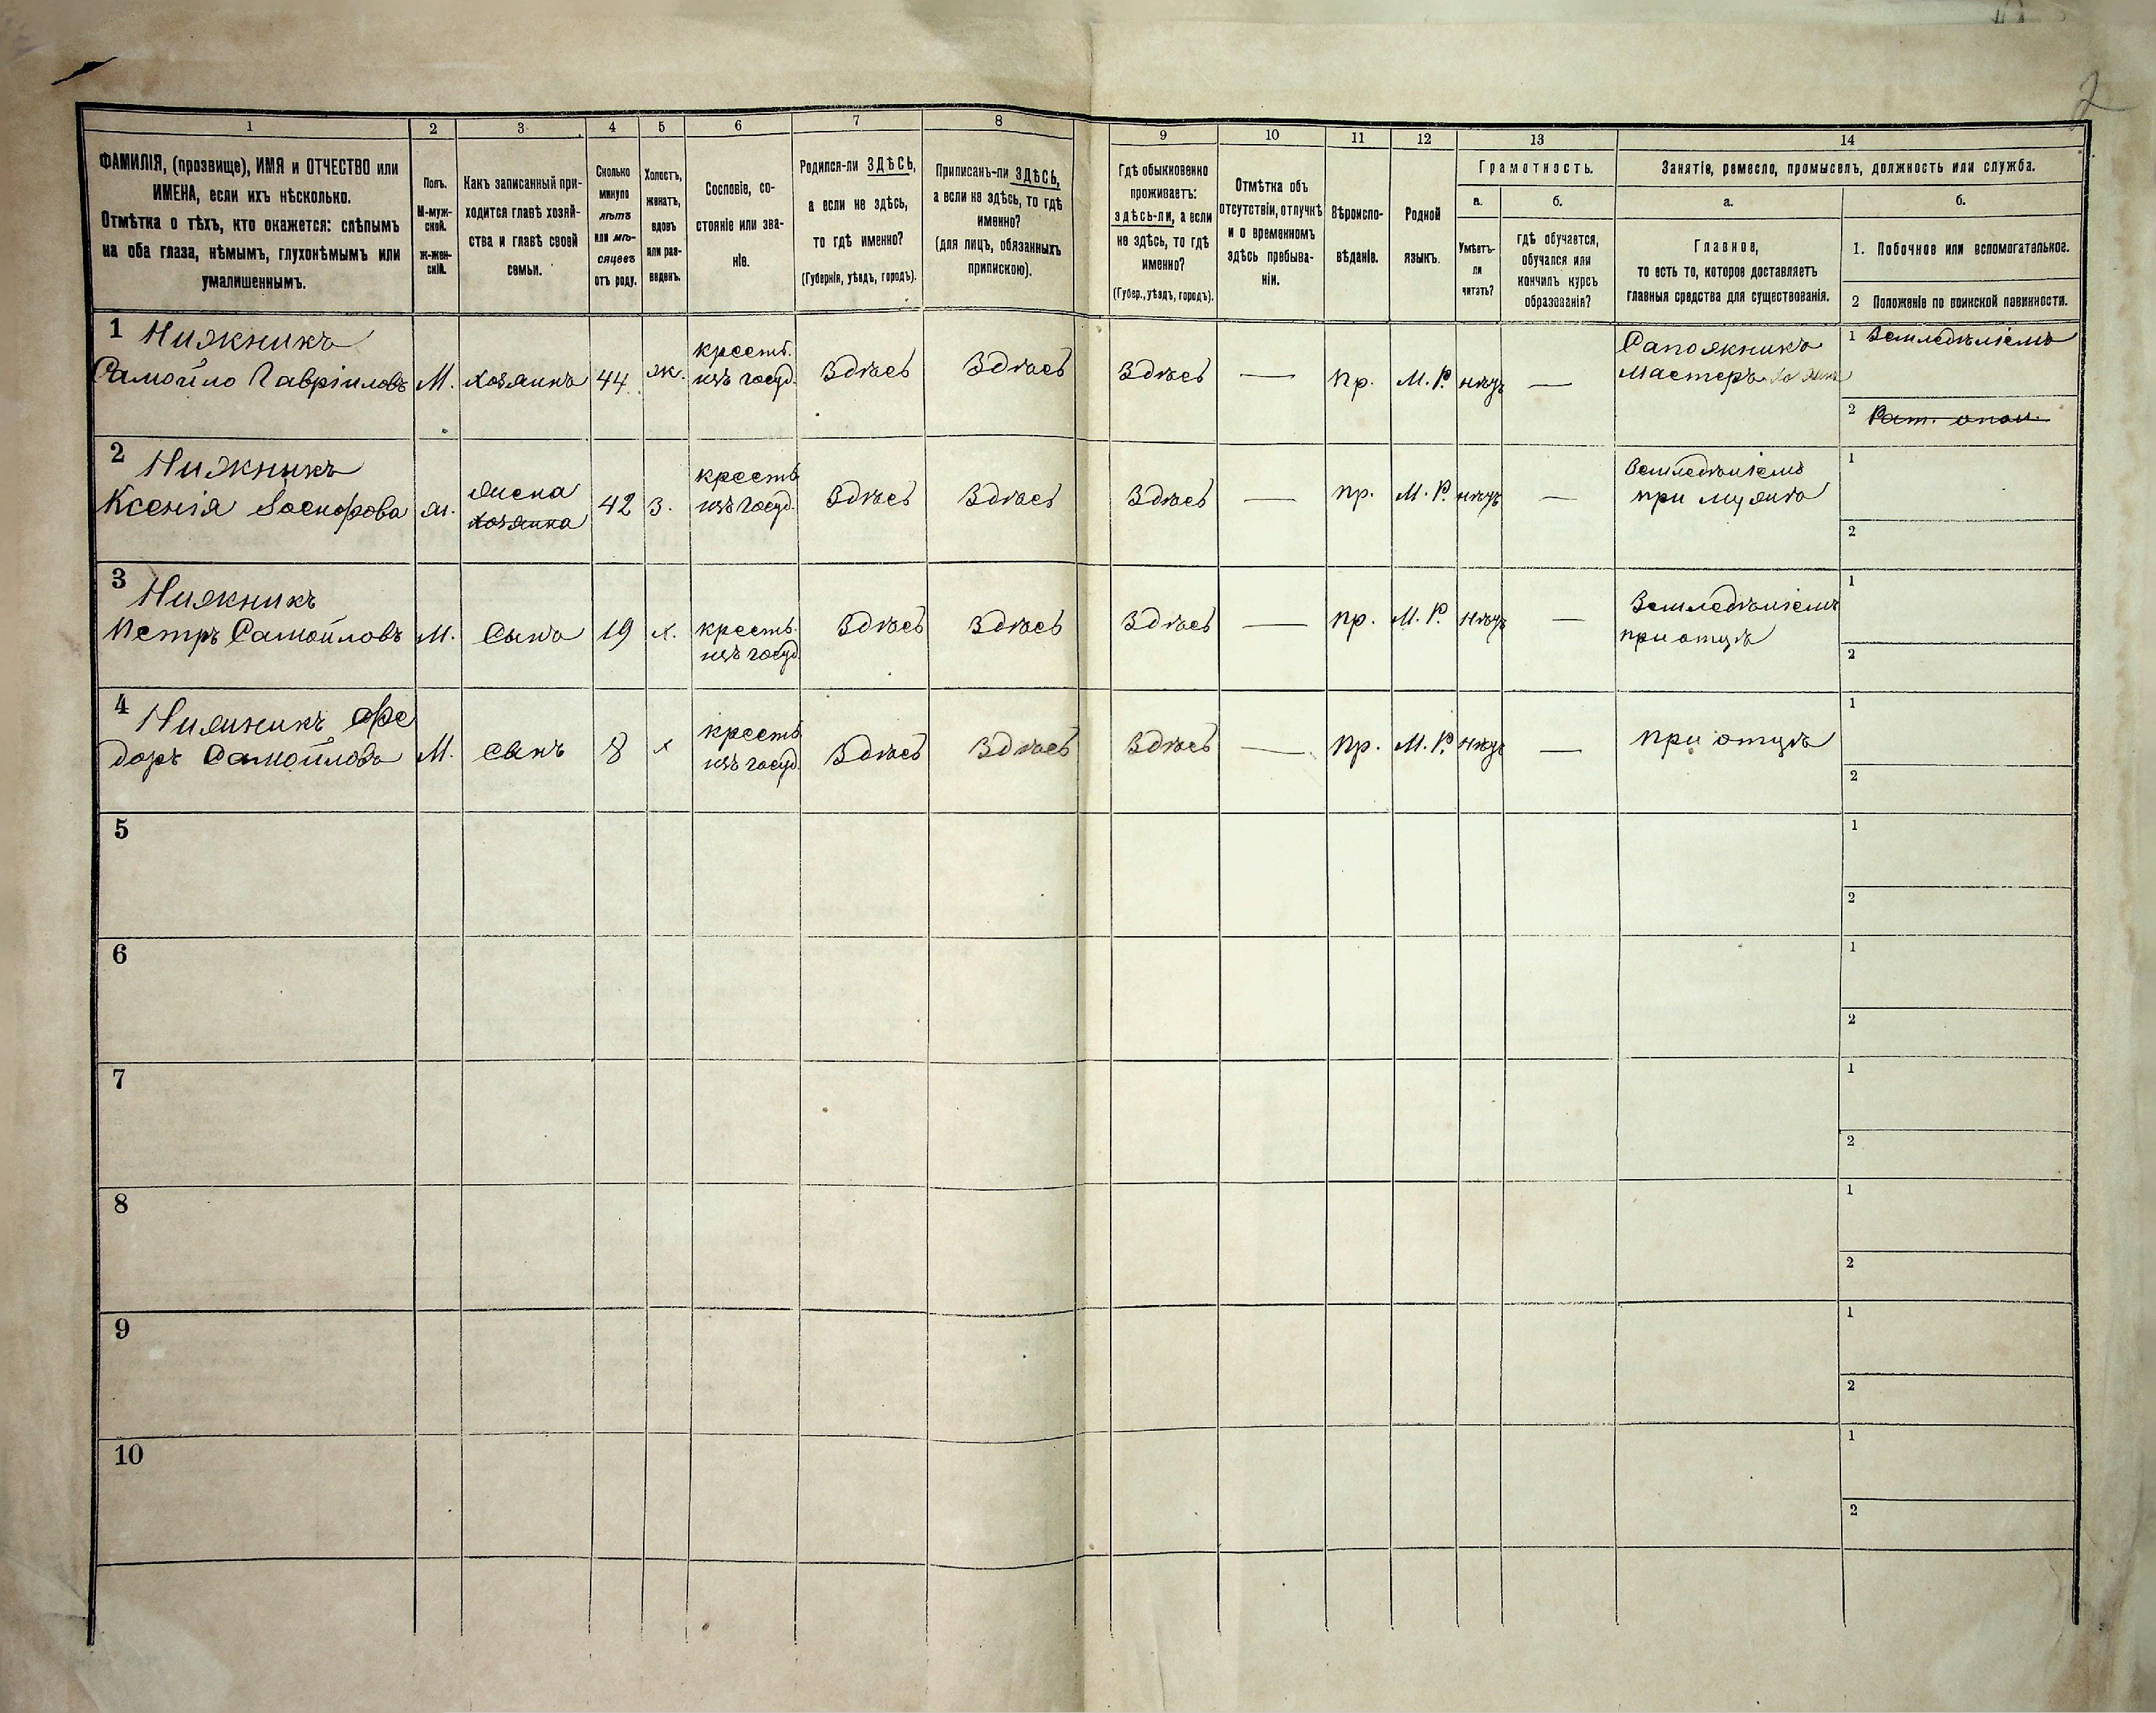 2
1 2 3 4 5 6 7 8 9 10 11 12 13 14
ФАМИЛІЯ, (прозвище), ИМЯ и ОТЧЕСТВО или
ИМЕНА, если ихъ нѣсколько.
Отмѣтка о тѣхъ, кто окажется: слѣпымъ
на оба глаза, нѣмымъ, глухонѣмымъ или
умалишеннымъ.
Полъ.
М-муж-
ской.
Ж-жен-
скій.
Какъ записанный при-
ходится главѣ хозяй-
ства и главѣ своей
семьи.
Сколько
минуло
лѣтъ
или мѣ-
сяцевъ
отъ роду.
Холостъ,
женатъ,
вдовъ
или раз-
веденъ.
Сословіе, со-
стояніе или зва-
ніе.
Родился-ли ЗДѢСЬ,
а если не здѣсь,
то гдѣ именно?
(Губернія, уѣздъ, городъ).
Приписанъ-ли ЗДѢСЬ,
а если не здѣсь, то гдѣ
именно?
(для лицъ, обязанныхъ
припискою).
Гдѣ обыкновенно
проживаетъ:
здѣсь-ли, а если
не здѣсь, то гдѣ
именно?
(Губер., уѣздъ, городъ).
Отмѣтка объ
отсутствіи, отлучкѣ
и о временномъ
здѣсь пребыва-
ніи.
Вѣроиспо-
вѣданіе.
Родной
языкъ.
Грамотность.
а.
Умѣетъ-
ли
читать?
б.
гдѣ обучается,
обучался или
кончилъ курсъ
образованія?
Занятіе, ремесло, промыселъ, должность или служба.
а.
Главное,
то есть то, которое доставляетъ
главныя средства для существованія.
б.
1. Побочное или вспомогательное.
2 Положеніе по воинской повинности.
1 Нижникъ
Самойло Гавріиловъ
М.
хозяинъ
44
ж.
крестъ.
изъ госуд.
Здѣсь
Здѣсь
Здѣсь
—
пр.
М. Р.
нѣтъ
—
Сапожникъ
Мастеръ хозяинъ
1 Земледѣліемъ
2 Рат. опол.
2 Нижникъ
Ксенія Іосифова
ж.
жена
хозяйка
42
з.
крестъ
изъ госуд.
Здѣсь
Здѣсь
Здѣсь
—
пр.
М. Р.
нѣтъ
—
Земледѣліемъ
при мужѣ
1
2
3 Нижникъ
Петръ Самойловъ
М.
Сынъ
19
х.
крестъ.
изъ госуд.
Здѣсь
Здѣсь
Здѣсь
—
пр.
М. Р.
Нѣтъ
—
Земледѣліемъ
при отцѣ
1
2
4 Нижникъ Фе
доръ Самойловъ
М.
сынъ
8
х
крестъ
изъ госуд.
Здѣсь
Здѣсь
Здѣсь
—
пр.
М. Р.
Нѣтъ
—
при отцѣ
1
2
5
1
2
6
1
2
7
1
2
8
1
2
9
1
2
10
1
2